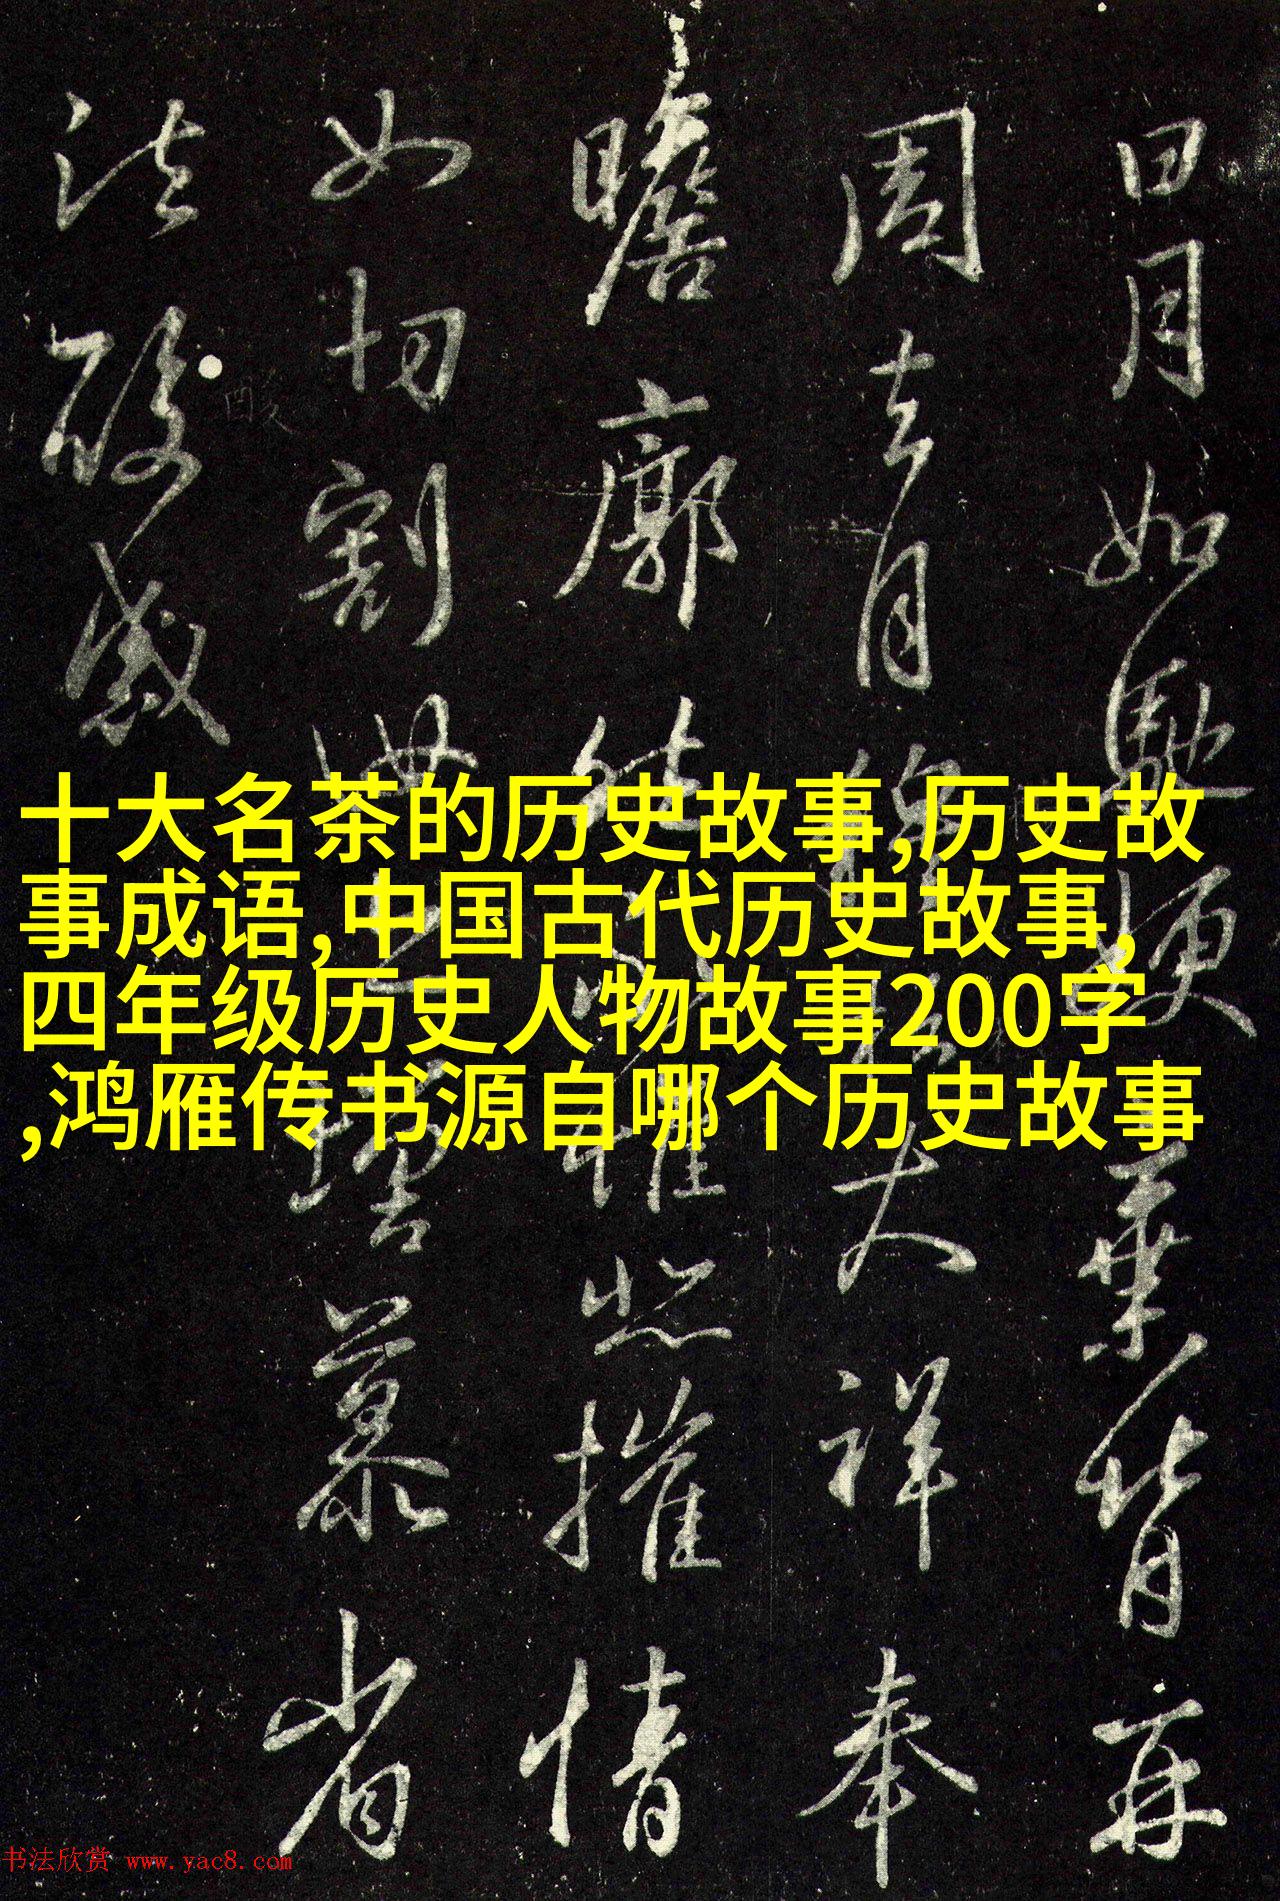 十大名茶的历史故事,历史故
事成语,中国古代历史故事,
四年级历史人物故事200字
,鸿雁传书源自哪个历史故事
日月如馳嫂棄背再
周去月穆松大祥奉
瞻廓然惟悲摧情
如切割增慕省
法酸感
酸
书法欣赏 www.yac8.com